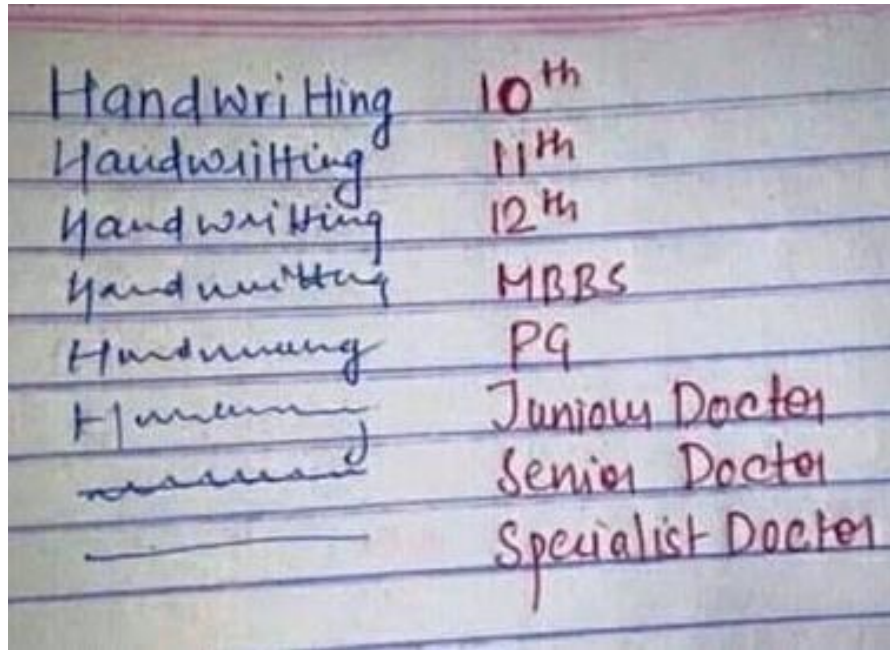 Handwritting 10th
Handwritting 11th
Handwritting 12th
Handwritting MBBS
PG
Juniour Docter
Senior Doctor
Specialist Docter